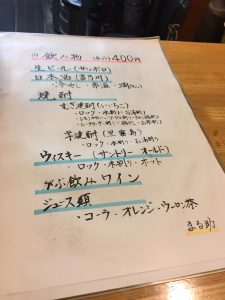 ◎飲み物 400円
生ビール(サッポロ)
日本酒
・冷やし・常温・
焼酎
むぎ焼酎(いいちこ)
・ロック・水割り・お湯割り
芋焼酎
・ロック・水割り・お湯割り
ウィスキー(サントリー オールド)
・ロック・水割り・ホット
がぶ飲みワイン
ジュース類
・コーラ・オレンジ・ウーロン茶
まる助